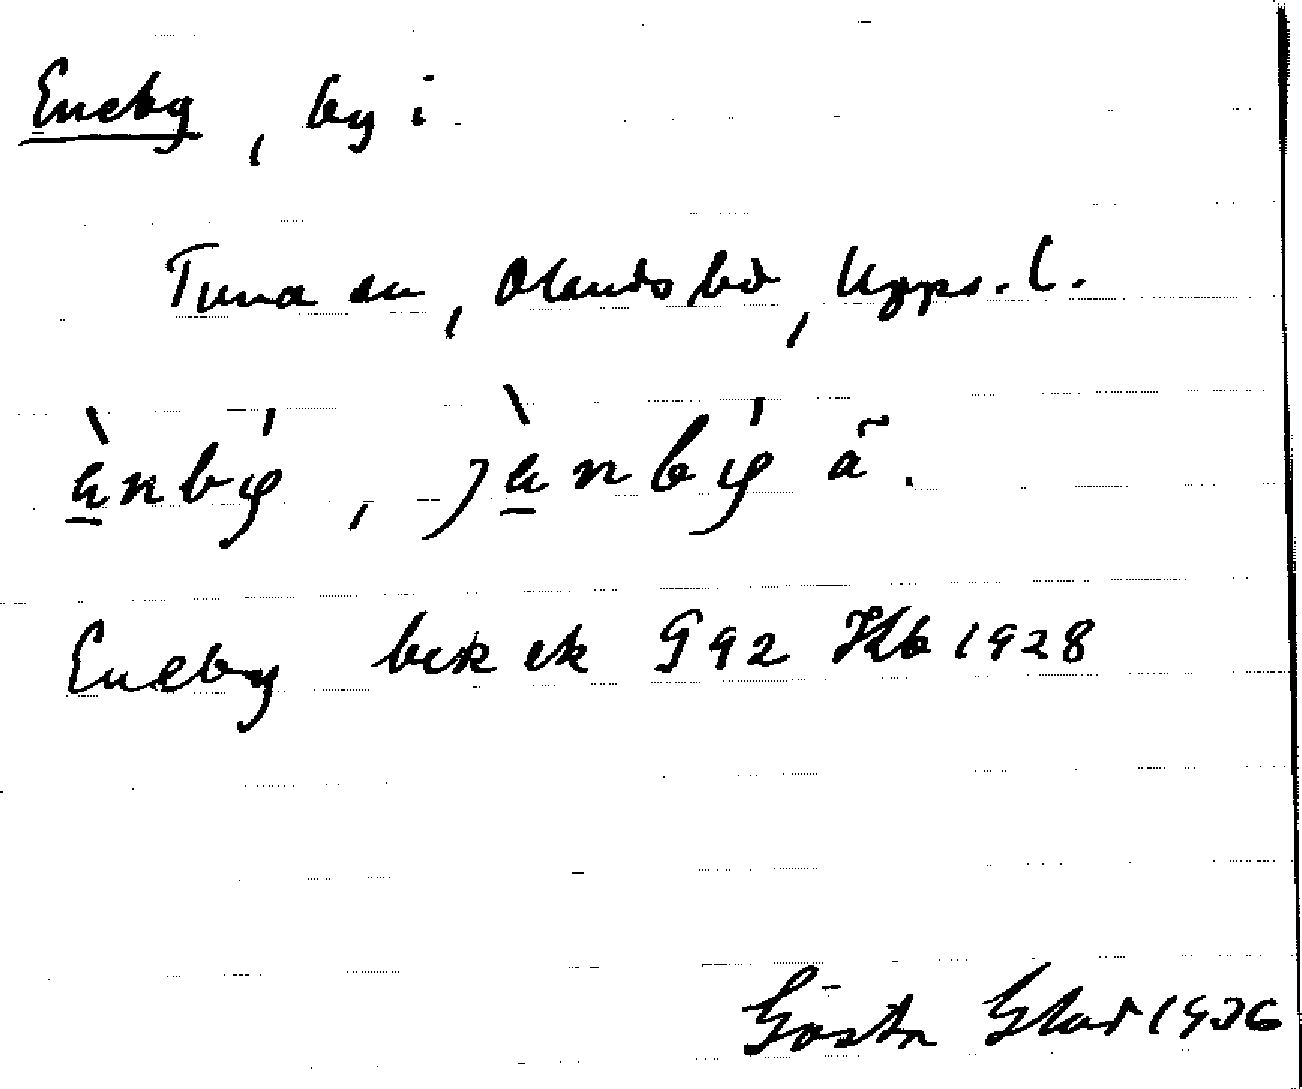 Eneby, by i
Tuna sn, Olands hd, Upps. l.
ὰnbý, jὰnbý ã.
Eneby bek ek G 92 Hb 1928
Gösta Glad 1936